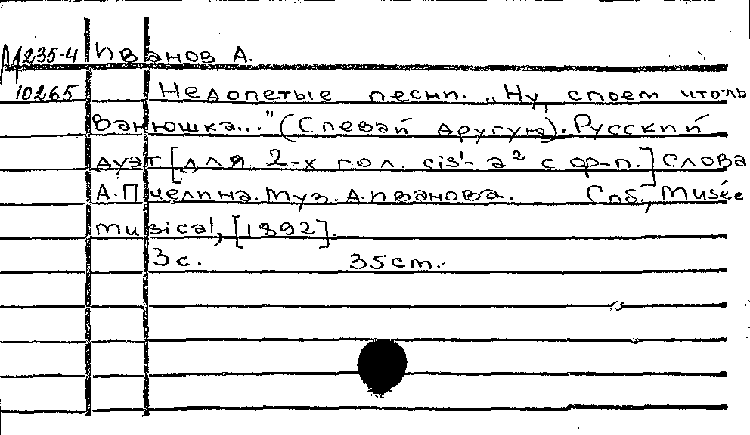 М235-4 Иванов А.
10265 Недопетые песни. „Ну, споем чтоль
Ванюшка..." (Спевай другую). Русский
дуэт [для 2-х гол. cis¹-a² с ф-п.] Слова
А. Пчелина. Муз. А. Иванова. Спб., Musée
musical, [1892].
3 с. 35 cm.